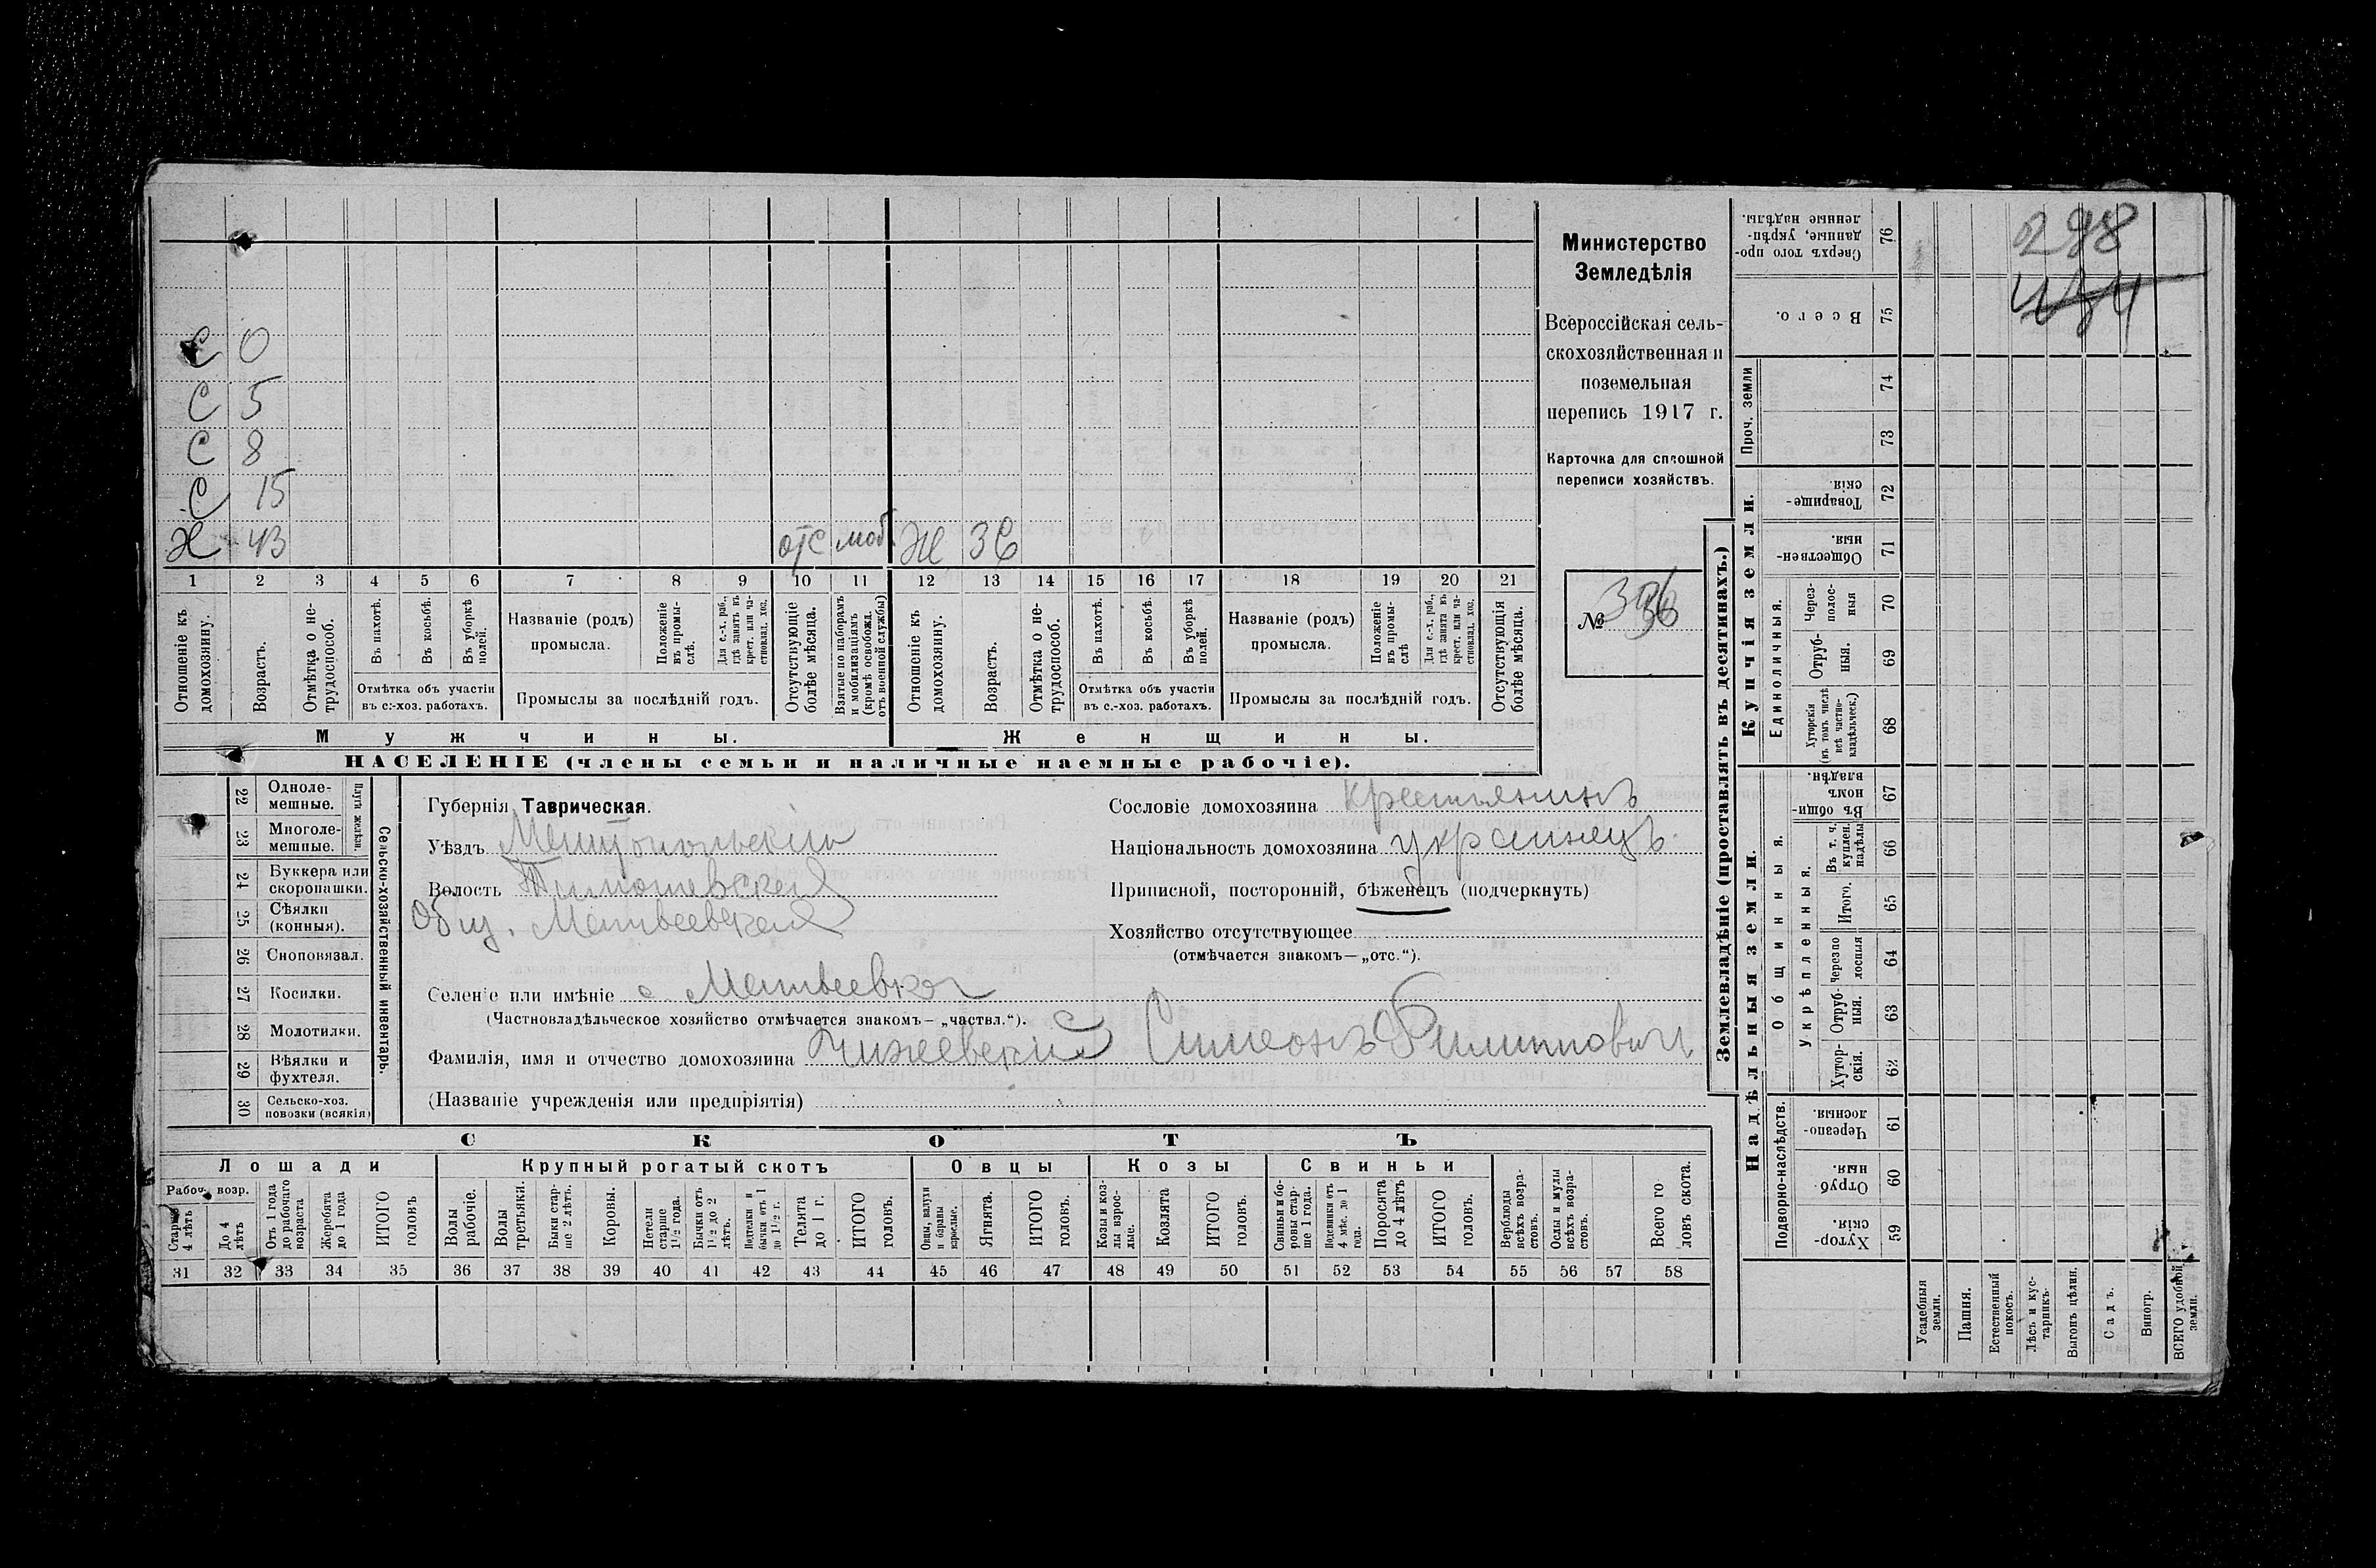 298
434
С 0
С 5
С 8
С 15
Х 43 отс моб. Ж 36
1 2 3 4 5 6 7 8 9 10 11 12 13 14 15 16 17 18 19 20 21
Отношеніе къ домохозяину.
Возрастъ.
Отмѣтка о нетрудоспособ.
Въ пахотѣ.
Въ косьбѣ.
Въ уборкѣ полей.
Отмѣтка объ участіи
въ с.-хоз. работахъ.
Названіе (родъ)
промысла.
Положеніе въ промыслѣ.
Для с.-х. раб., гдѣ занятъ въ крест. или частновлад. хоз.
Промыслы за послѣдній годъ.
Отсутствующіе болѣе мѣсяца.
Взятые по наборамъ и мобилизаціямъ (кромѣ освобожд. отъ военной службы)
Отношеніе къ домохозяину.
Возрастъ.
Отмѣтка о нетрудоспособ.
Въ пахотѣ.
Въ косьбѣ.
Въ уборкѣ полей.
Отмѣтка объ участіи
въ с.-хоз. работахъ.
Названіе (родъ)
промысла.
Положеніе въ промыслѣ
Для с.-х. раб., гдѣ занята въ крест. или частновлад. хоз.
Промыслы за послѣдній годъ.
Отсутствующія болѣе мѣсяца.
Мужчины.
Женщины.
НАСЕЛЕНІЕ (члены семьи и наличные наемные рабочіе).
Министерство
Земледѣлія
Всероссійская сель-
скохозяйственная и
поземельная
перепись 1917 г.
Карточка для сплошной
переписи хозяйствъ.
№ 396
22 Однолемешные.
23 Многолемешные.
Плуги желѣзн.
24 Буккера или скоропашки.
25 Сѣялки (конныя).
26 Сноповязал.
27 Косилки.
28 Молотилки.
29 Вѣялки и фухтеля.
30 Сельско-хоз. повозки (всякія)
Сельско-хозяйственный инвентарь.
Губернія Таврическая.
Уѣздъ Мелитопольскій
Волость Тимошевская
Общ. Матвеевская
Селеніе или имѣніе с Матвеевка
(Частновладѣльческое хозяйство отмѣчается знакомъ—„частвл.“).
Фамилія, имя и отчество домохозяина Чижевскій Симеонъ Филипповичъ
(Названіе учрежденія или предпріятія)
Сословіе домохозяина крестьянинъ
Національность домохозяина украинецъ
Приписной, посторонній, бѣженецъ (подчеркнуть)
Хозяйство отсутствующее
(отмѣчается знакомъ—„отс.“).
СКОТЪ
Лошади
Крупный рогатый скотъ
Овцы
Козы
Свиньи
Рабоч. возр.
Старше 4 лѣтъ
До 4 лѣтъ
Отъ 1 года до рабочаго возраста
Жеребята до 1 года
ИТОГО головъ
Волы рабочіе.
Волы третьяки.
Быки старше 2 лѣтъ.
Коровы.
Нетели старше 1½ года.
Бычки отъ 1½ до 2 лѣтъ.
Подтелки и бычки отъ 1 до 1½ г.
Телята до 1 г.
ИТОГО головъ.
Овцы, валухи и бараны взрослые.
Ягнята.
ИТОГО головъ.
Козы и козлы взрослые.
Козлята
ИТОГО головъ.
Свиньи и боровы старше 1 года.
Подсвинки отъ 4 мѣс. до 1 года.
Поросята до 4 лѣтъ
ИТОГО головъ.
Верблюды всѣхъ возрастовъ.
Ослы и мулы всѣхъ возрастовъ.
Всего головъ скота.
31 32 33 34 35 36 37 38 39 40 41 42 43 44 45 46 47 48 49 50 51 52 53 54 55 56 57 58
Землевладѣніе (проставлять въ десятинахъ.)
Надѣльныя земли.
Купчія земли.
Проч. земли
Подворно-наслѣдств.
Общинныя.
Укрѣпленныя.
Единоличныя.
Сверхъ того проданные, укрѣпленные надѣлы. 76
Всего. 75
74
73
Товарищескія 72
Общественныя. 71
Черезполосныя 70
Отрубныя. 69
Хуторскія (въ томъ числѣ всѣ частновладѣльческ.) 68
Въ общинномъ владѣн. 67
Въ т. ч. куплен. надѣлы 66
Итого. 65
Черезполосныя 64
Отрубныя. 63
Хуторскія. 62
Черезполосныя. 61
Отрубныя. 60
Хуторскія. 59
Усадебныя земли.
Пашня.
Естественный покосъ.
Лѣсъ и кустарникъ.
Выгонъ цѣлин.
Садъ.
Виногр.
ВСЕГО удобной земли.